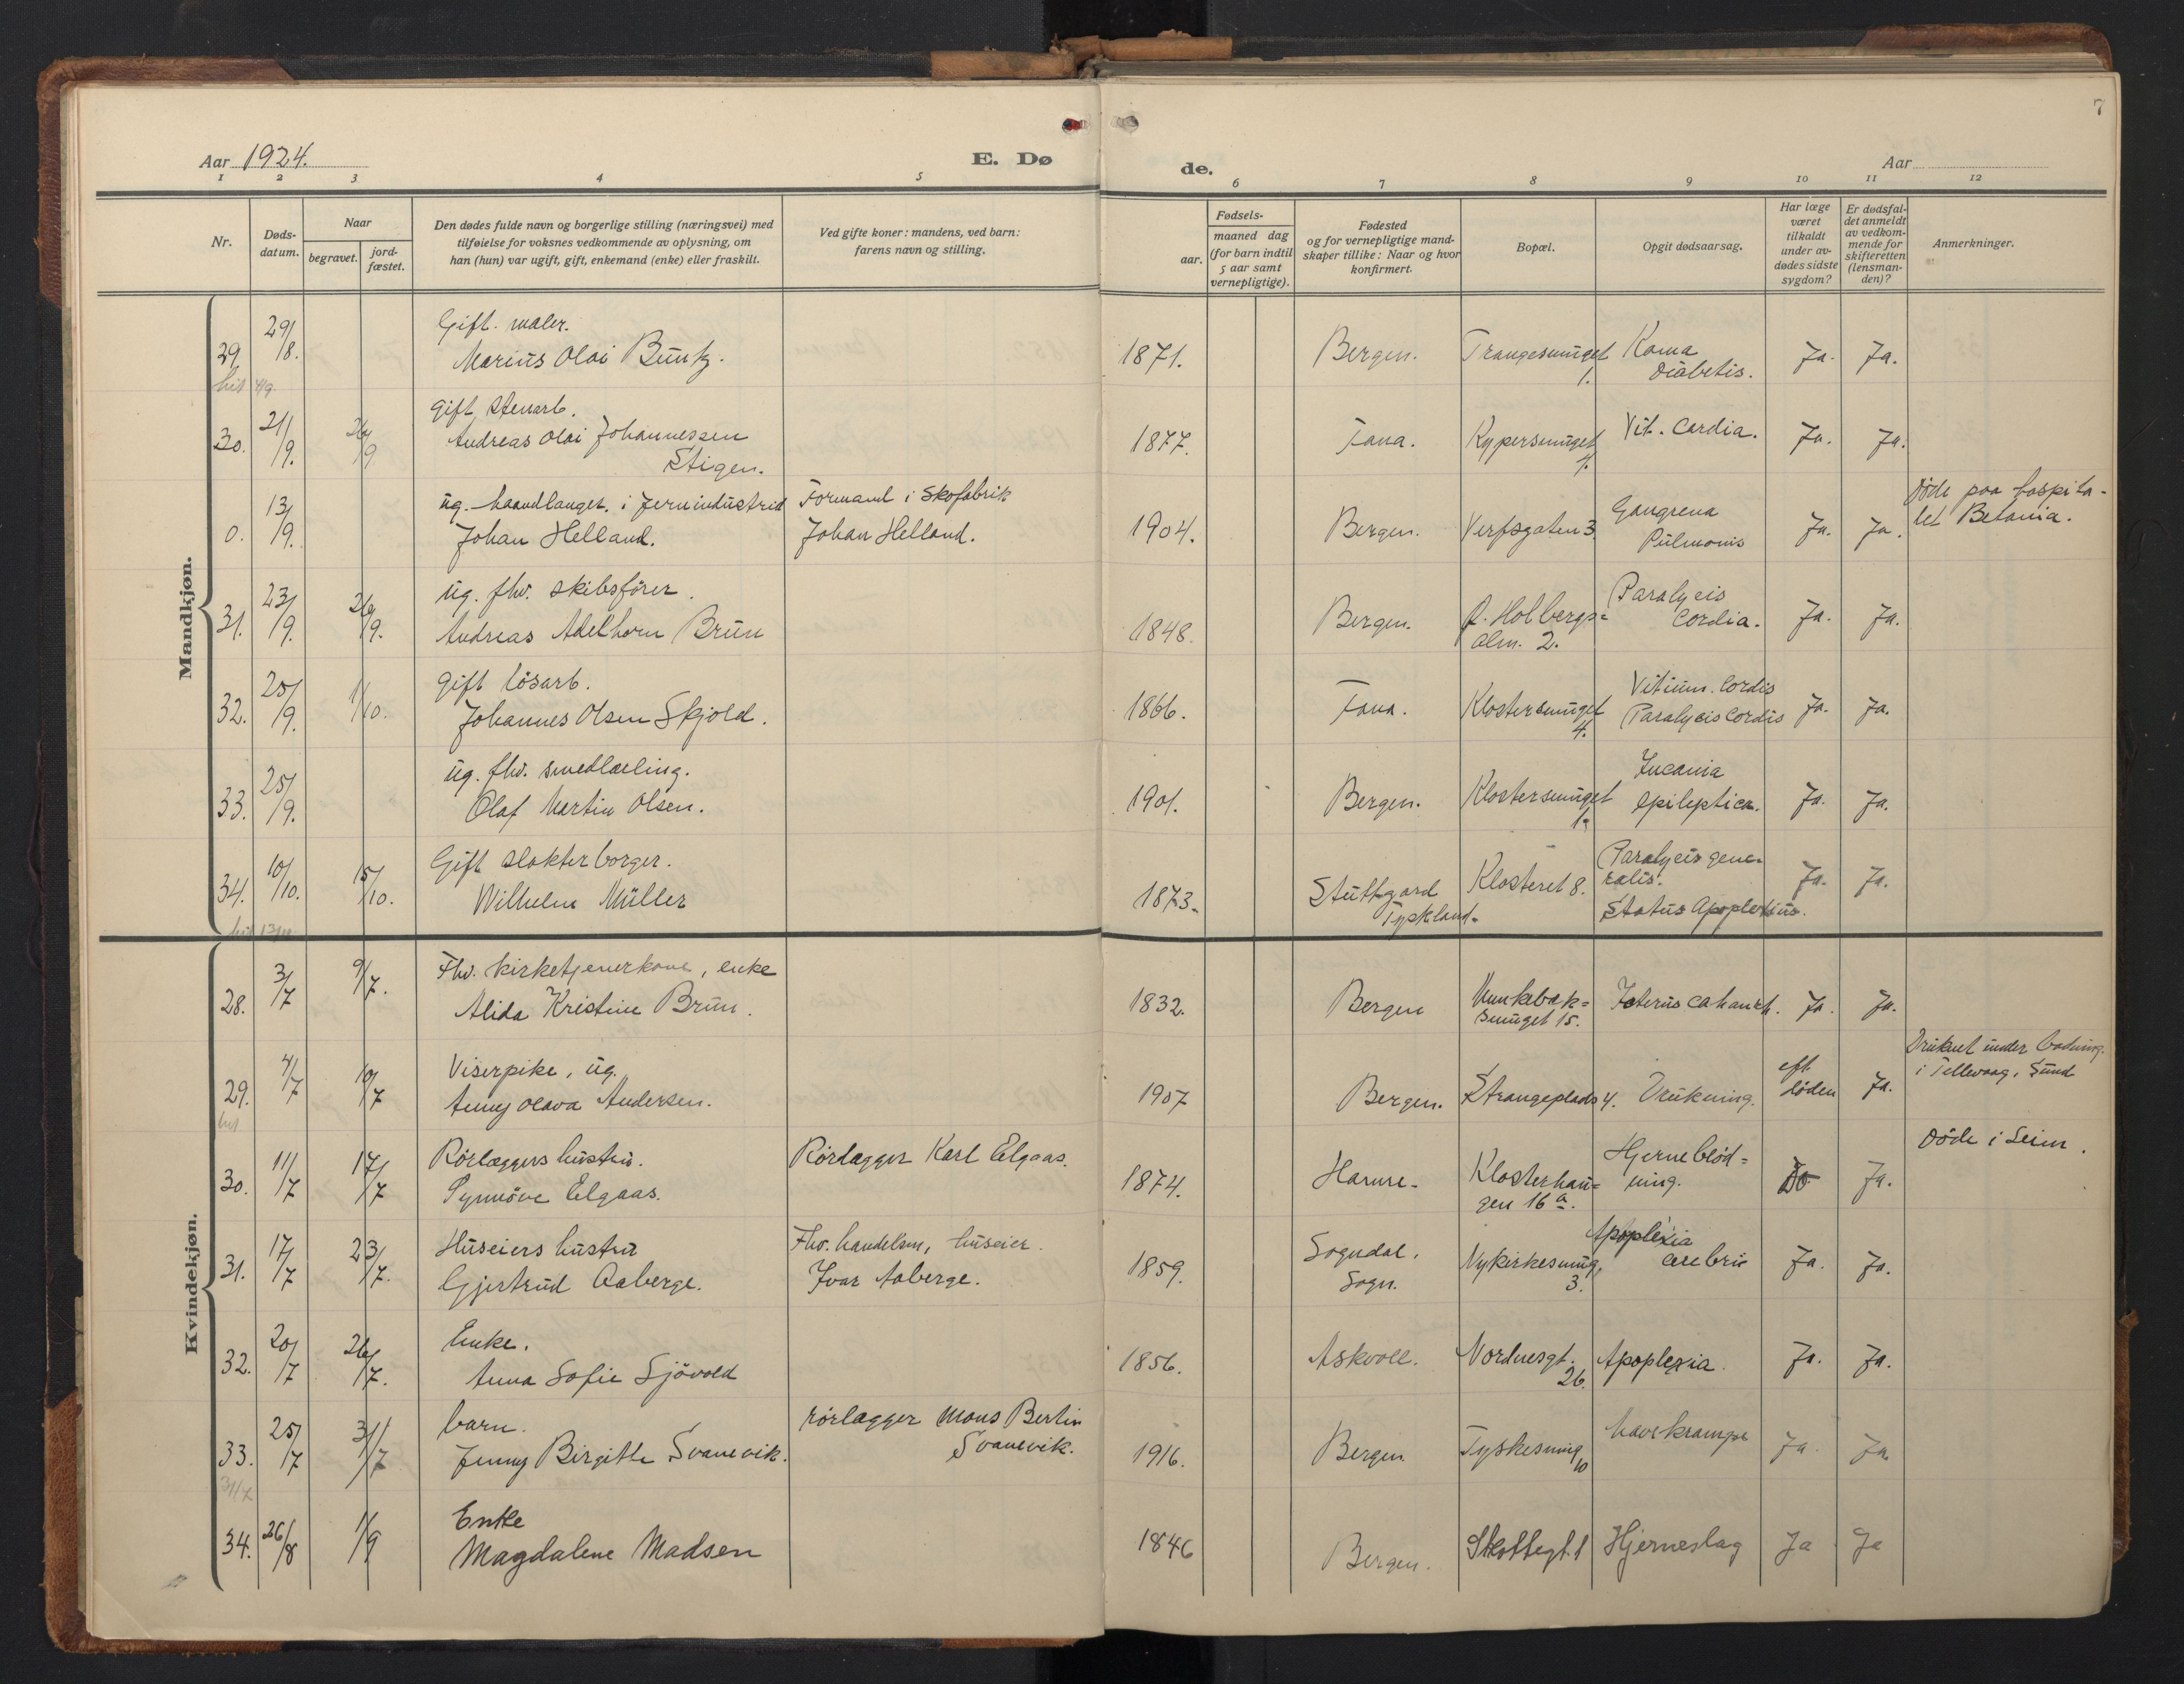 7
Aar 1924.
E. Dø
de.
Aar
1 2 3 4 5 6 7 8 9 10 11 12
Nr.
Døds-
datum.
Naar
begravet.
jord-
fæstet.
Den dødes fulde navn og borgerlige stilling (næringsvei) med
tilføielse for voksnes vedkommende av oplysning, om
han (hun) var ugift, gift, enkemand (enke) eller fraskilt.
Ved gifte koner: mandens, ved barn:
farens navn og stilling.
Fødsels-
aar.
maaned dag
(for barn indtil
5 aar samt
vernepligtige).
Fødested
og for vernepligtige mand-
skaper tillike: Naar og hvor
konfirmert.
Bopæl.
Opgit dødsaarsag.
Har læge
været
tilkaldt
under av-
dødes sidste
sygdom?
Er dødsfal-
det anmeldt
av vedkom-
mende for
skifteretten
(lensman-
den)?
Anmerkninger.
Mandkjøn.
29. 29/8.
Gift. maler.
Marius Olai Buntz.
1871. Bergen. Trangesmuget 1. Koma
Diabetis. Ja. Ja.
4/9.
30. 21/9. 26/9
Gift stenarb.
Andreas Olai Johannessen
Stigen.
1877. Fana. Kypersmuget 4. Vit. Cordia. Ja. Ja.
0. 13/9.
ug. haandlanger. i Jernindustrid
Johan Helland.
Formand i Skofabrik
Johan Helland.
1904. Bergen. Verfsgaten 3. Gangrena
Pulmonis Ja. Ja.
Döde paa hospita-
let Betania.
31. 23/9. 26/9.
ug. fhv. skibsförer.
Andreas Adelhorn Brun
1848. Bergen. L. Holbergs=
alm. 2. Paralycis
Cordia. Ja. Ja.
32. 25/9. 1/10.
Gift lösarb.
Johannes Olsen Skjold.
1866. Fana. Klostersmuget 4. Vitium. Cordis
Paralycis Cordis Ja. Ja.
33. 25/9.
ug. fhv. smedlærling.
Olaf Martin Olsen.
1901. Bergen. Klostersmuget 1a Incania
epileptica. Ja. Ja.
34. 10/10. 15/10.
Gift slakterborger.
Wilhelm Müller
1873. Stuttgard
Tyskland. Klosteret 8. Paralycis gene-
ralis.
Status Apoplektius. Ja. Ja.
13/10
Kvindekjøn.
28. 3/7 9/7.
Fhv. kirketjenerkone, enke
Alida Kristine Brun.
1832. Bergen Munkebæk=
smuget 15. Icterus Ja. Ja.
29. 4/7 10/7
Viserpike, ug.
Anny Olava Andersen.
1907 Bergen. Strangeplads 4. Drukning. eft.
döden Ja.
Druknet under badning.
i Tellevaag, Sund
30. 11/7 17/7
Rörlæggers hustru.
Synnöve Elgaas.
Rörlægger Karl Elgaas.
1874. Hamre. Klosterhau=
gen 16 a. Hjerneblöd=
ning. Ja.
Döde i Seim.
31. 17/7 23/7.
Huseiers hustru
Gjertrud Aaberge.
Fhv. handelsm, huseier.
Ivar Aaberge.
1859. Sogndal.
Sogn. Nykirkesmug, 3. Apoplexia
cerebrie Ja. Ja.
32. 20/7 26/7.
Enke.
Anna Sofie Sjövold
1856. Askvoll. Nordnesgt. 26. Apoplexia. Ja. Ja.
33. 25/7 31/7
barn.
Jenny Birgitte Svanevik.
rörlægger Mons Bertin
Svanevik.
1916. Bergen Tyskesmug 10 Ja. Ja.
31/7
34. 26/8 1/9
Enke
Magdalene Madsen
1846 Bergen. Skottegt. 1 Hjerneslag Ja Ja